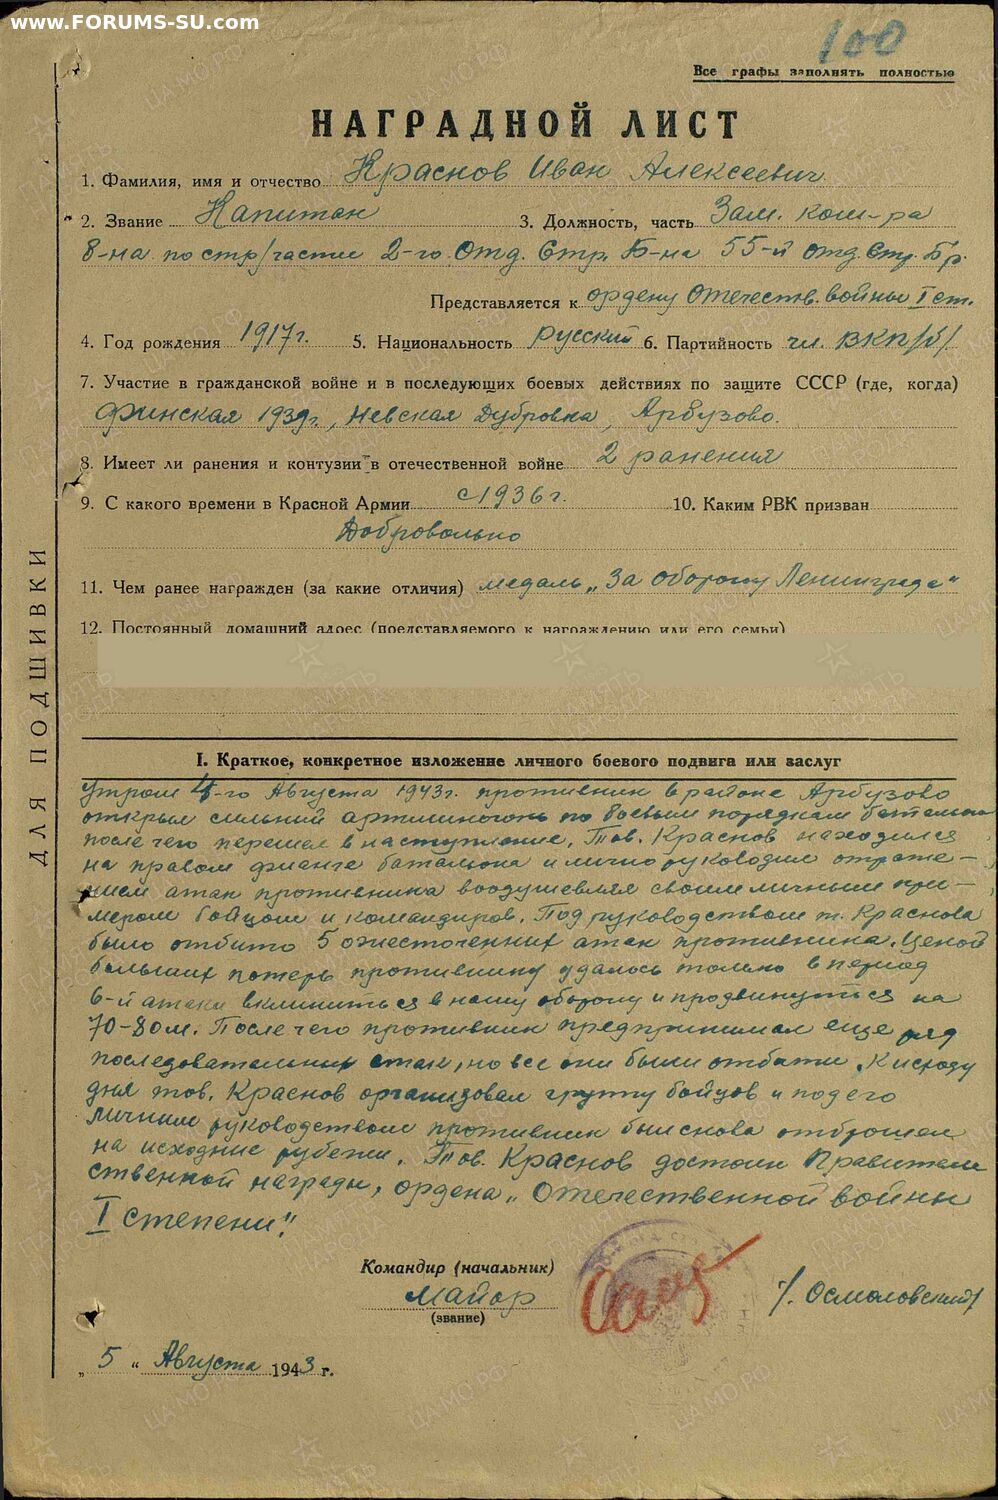 www.FORUMS-SU.com
100
Все графы заполнять полностью
НАГРАДНОЙ ЛИСТ
1. Фамилия, имя и отчество Краснов Иван Алексеевич
2. Звание Капитан 3. Должность, часть Зам. ком-ра
8-на по стр/части 2-го Отд. Стр. Б-на 55-й отд. Стр. Бр.
Представляется к ордену Отечеств. войны I ст.
4. Год рождения 1917г. 5. Национальность русский 6. Партийность чл. ВКП/б/
7. Участие в гражданской войне и в последующих боевых действиях по защите СССР (где, когда)
Финская 1939г., Невская Дубровка, Арбузово.
8. Имеет ли ранения и контузии в отечественной войне 2 ранения
9. С какого времени в Красной Армии с 1936г. 10. Каким РВК призван
Добровольно
11. Чем ранее награжден (за какие отличия) медаль „За оборону Ленинграда"
12. Постоянный домашний адрес (представляемого к награждению или его семьи)
ДЛЯ ПОДШИВКИ
I. Краткое, конкретное изложение личного боевого подвига или заслуг
Утром 4-го Августа 1943г. противник в районе Арбузово
открыл сильный артминогонь по боевым порядкам батальона
после чего перешел в наступление. Тов. Краснов находился
на правом фланге батальона и лично руководил отраже-
нием атак противника воодушевляя своим личным при-
мером бойцов и командиров. Под руководством т. Краснова
было отбито 5 ожесточенных атак противника. Ценой
больших потерь противнику удалось только в период
6-й атаки вклиниться в нашу оборону и продвинуться на
70-80м. После чего противник предпринимал еще ряд
последовательных атак, но все они были отбиты. К исходу
дня тов. Краснов организовал группу бойцов и под его
личным руководством противник был снова отброшен
на исходные рубежи. Тов. Краснов достоин Правитель
ственной награды, ордена „Отечественной войны
I степени".
Командир (начальник)
Майор /. Осмоловский/
(звание)
„5" Августа 1943 г.